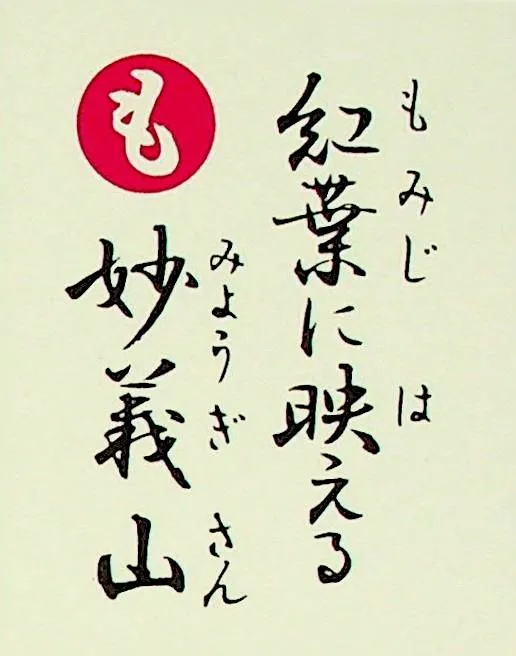 も
もみじ は
紅葉に映える
みようぎ さん
妙義山